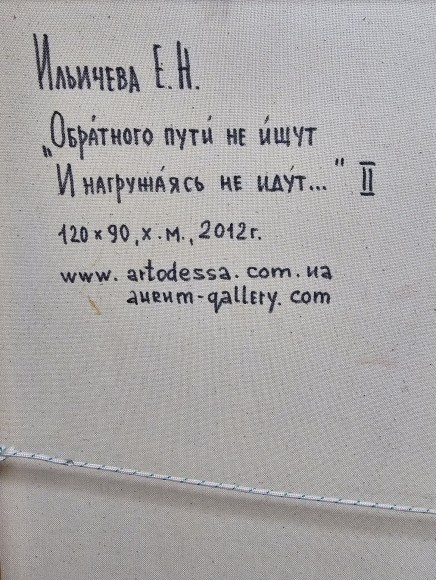 Ильичева Е.Н.
„Обра́тного пути́ не и́щут
И нагружа́ясь не иду́т..." II
120×90, х.м., 2012г.
www.artodessa.com.ua
avent-gallery.com